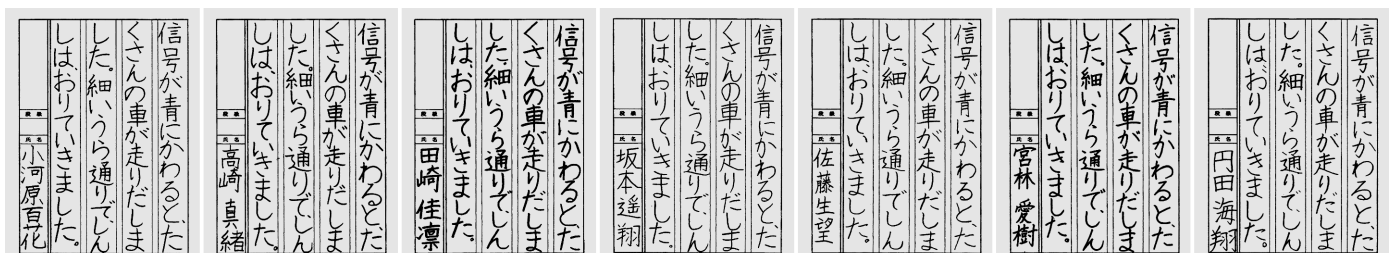 信号が青にかわると、た
くさんの車が走りだしま
した。細いうら通りでしん
しは、おりていきました。
段 級
氏 名
小河原百花
信号が青にかわると、た
くさんの車が走りだしま
した。細いうら通りで、しん
しは、おりていきました。
段 級
氏 名
高崎 真緒
信号が青にかわると、た
くさんの車が走りだしま
した。細いうら通りで、しん
しは、おりていきました。
段 級
氏 名
田崎 佳凛
信号が青にかわると、た
くさんの車が走りだしま
した。細いうら通りで、しん
しは、おりていきました。
段 級
氏 名
坂本遥翔
信号が青にかわると、た
くさんの車が走りだしま
した。細いうら通りでしん
しは、おりていきました。
段 級
氏 名
佐藤生望
信号が青にかわると、た
くさんの車が走りだしま
した。細いうら通りで、しん
しは、おりていきました。
段 級
氏 名
宮林 愛樹
信号が青にかわると、た
くさんの車が走りだしま
した。細いうら通りで、しん
しは、おりていきました。
段 級
氏 名
円田海翔